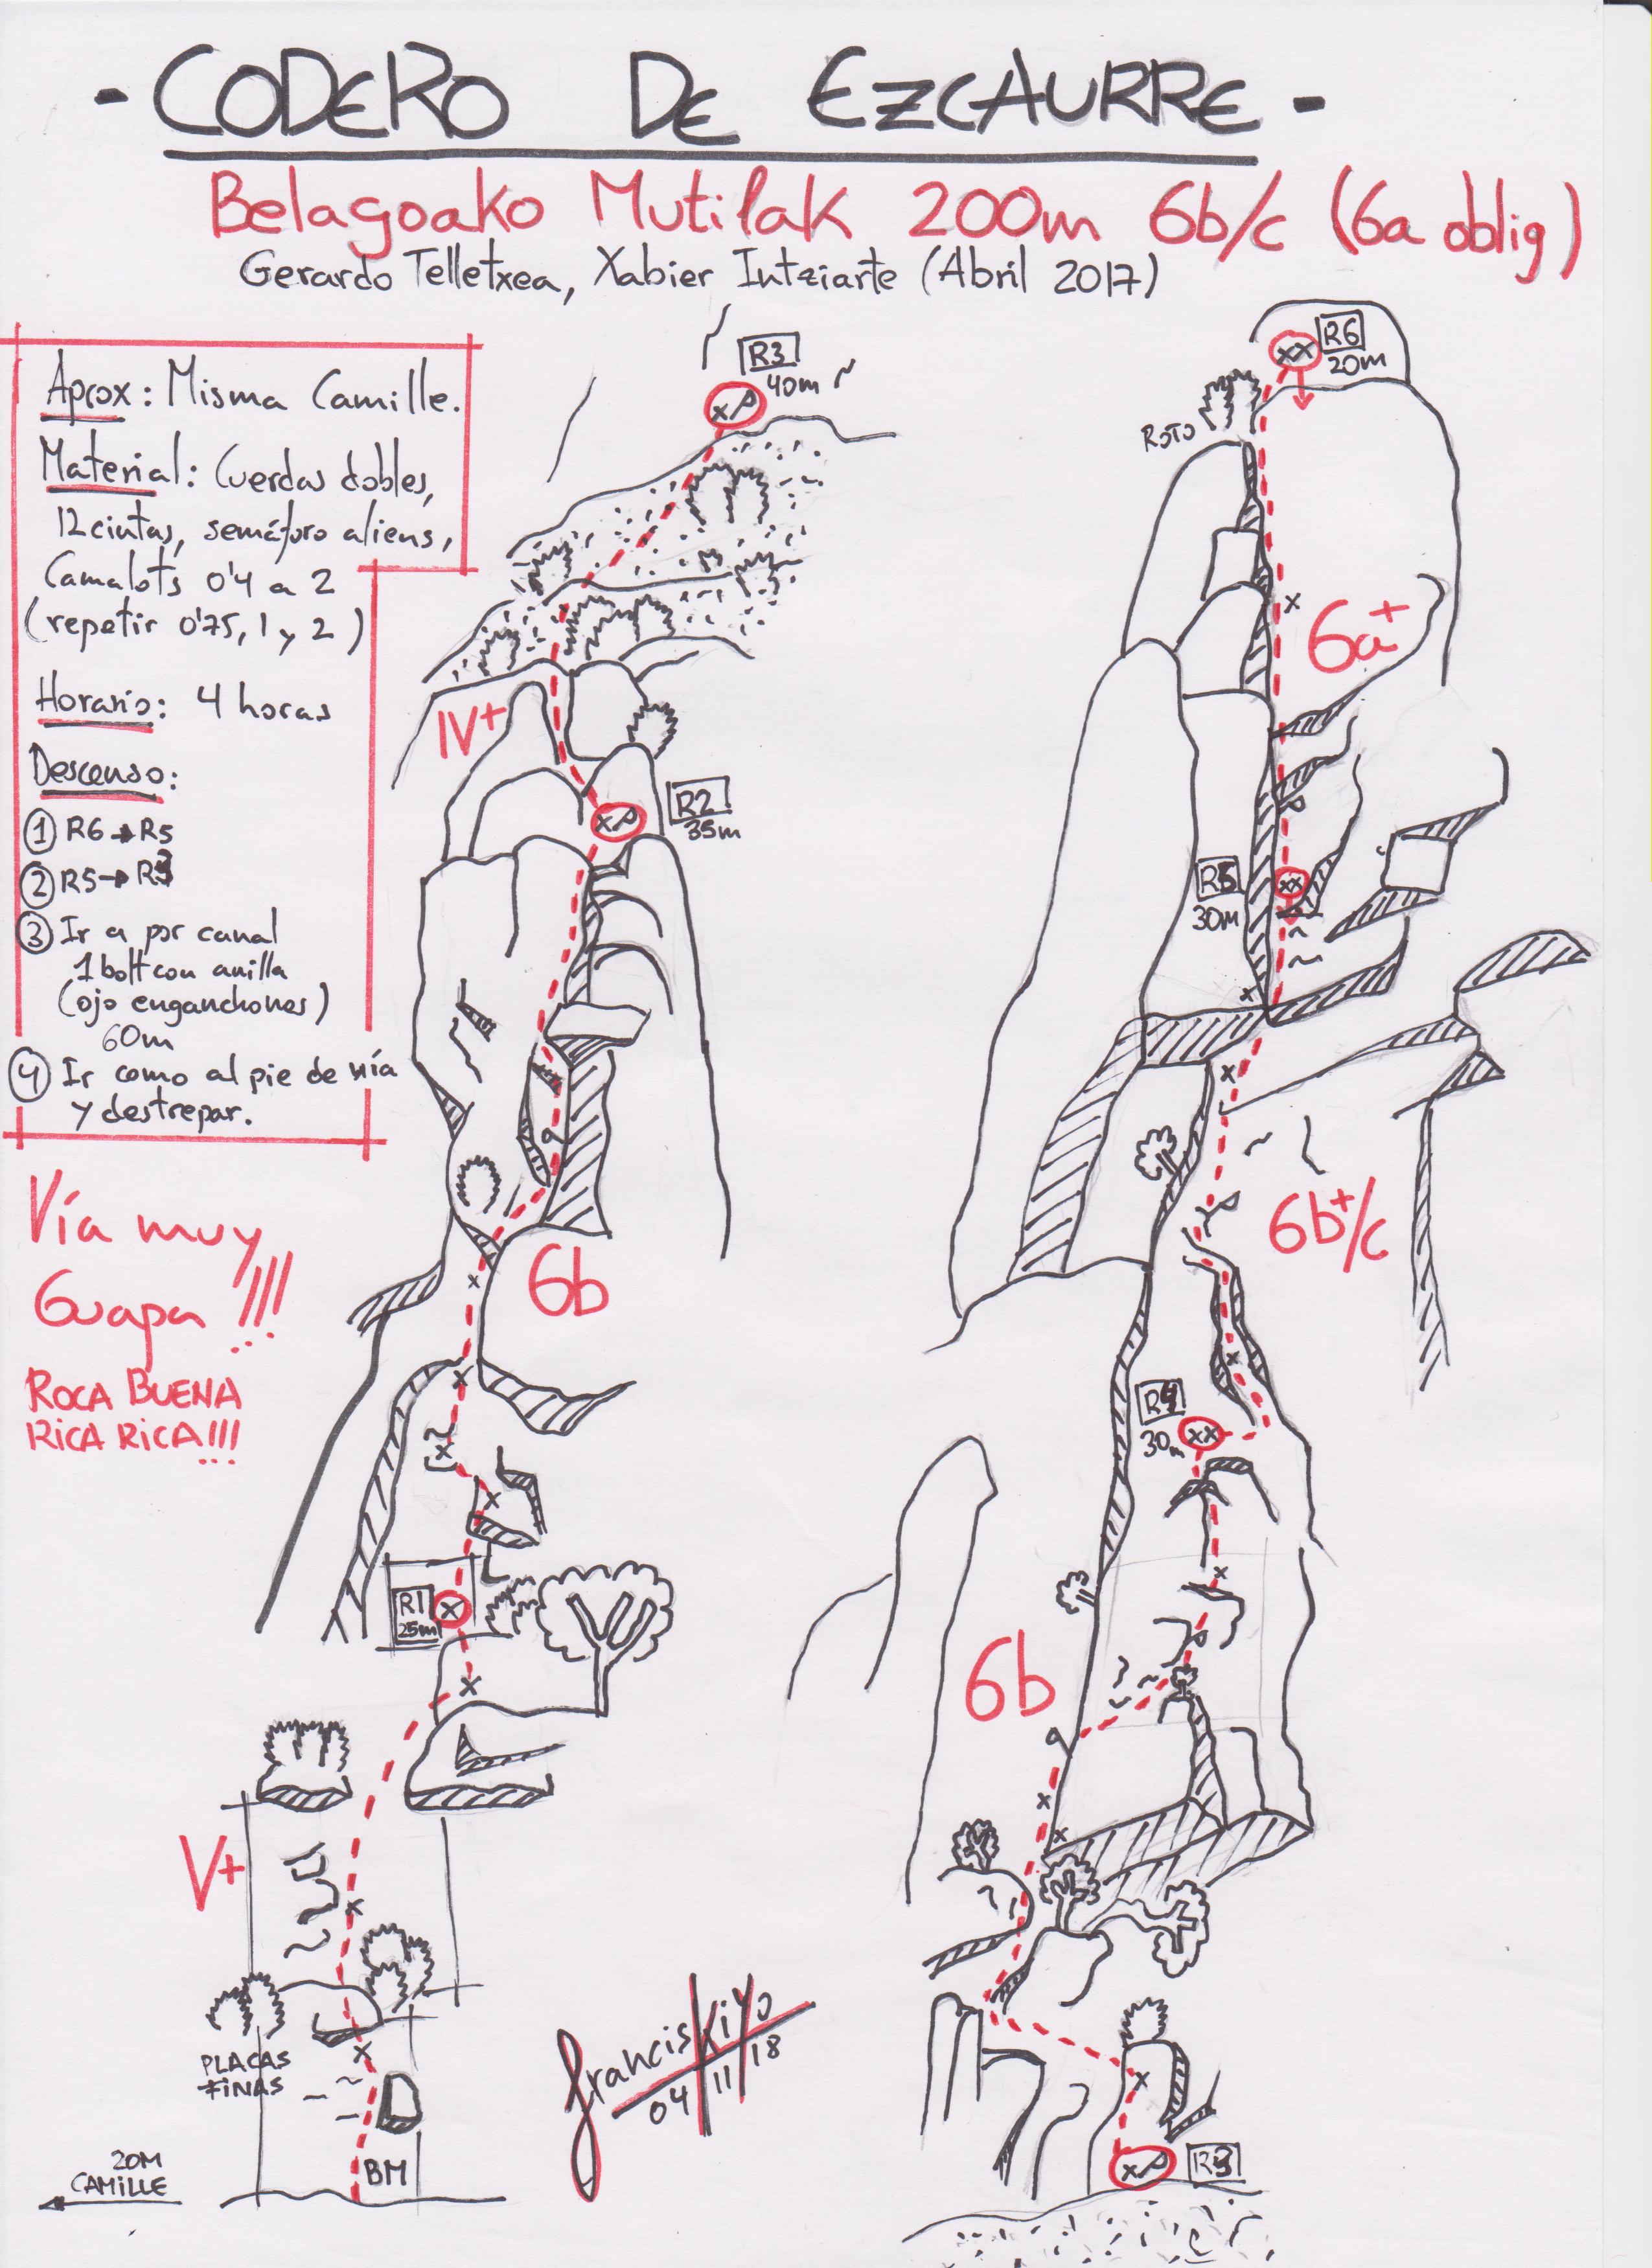 - CODERO DE EZCAURRE -
Belagoako Mutilak 200m 6b/c (6a oblig)
Gerardo Telletxea, Xabier Intziarte (Abril 2017)
Aprox: Misma Camille.
Material: Cuerdas dobles,
12 cintas, semáforo aliens,
Camalots 0'4 a 2
(repetir 0'75, 1 y 2)
Horario: 4 horas
Descenso:
① R6 → R5
② R5 → R3
③ Ir a por canal
1 bolt con anilla
(ojo enganchones)
60m
④ Ir como al pie de vía
y destrepar.
Vía muy
Guapa !!!
ROCA BUENA
RICA RICA!!!
R3
40m
IV+
R2
35m
6b
R1
25m
V+
PLACAS
FINAS
20M
CAMILLE
BM
franciskiyo
04/11/18
R6
20m
ROTO
6a+
R5
30m
6b+/c
R4
30m
6b
R3